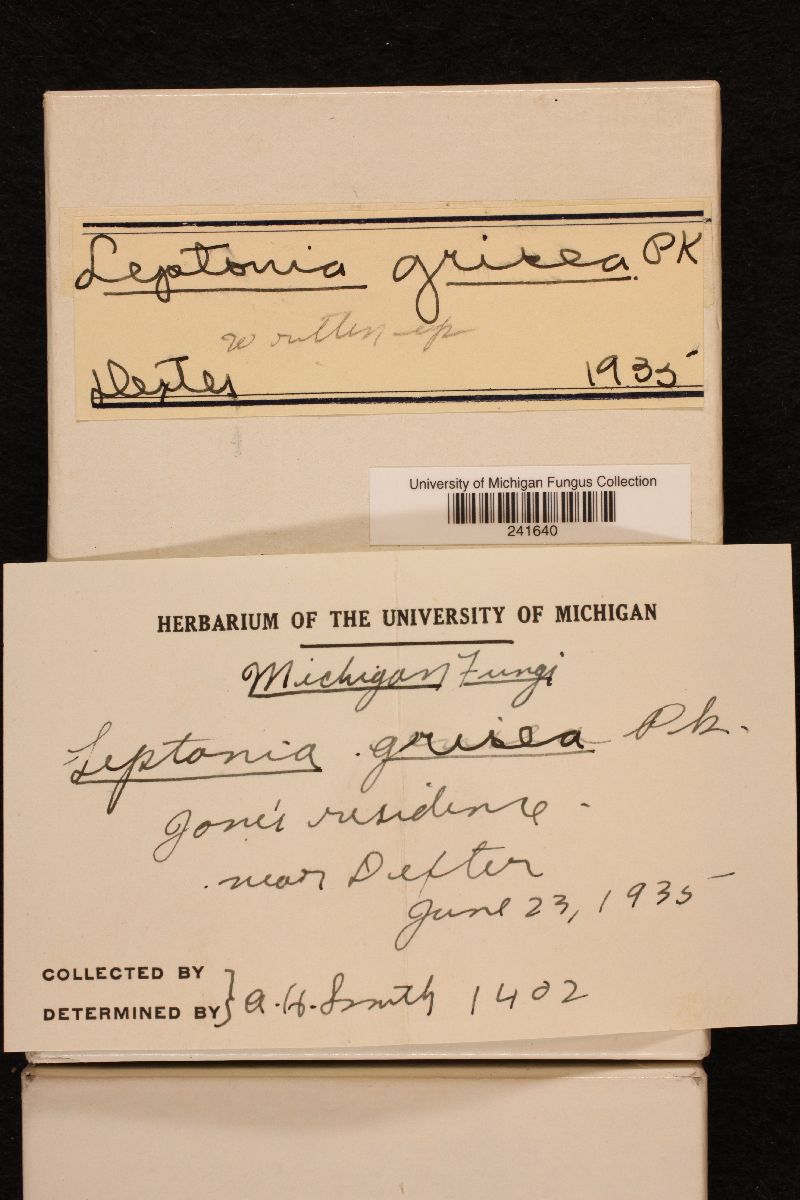 Leptonia grisea PK
written up
Dexter 1935
University of Michigan Fungus Collection
241640
HERBARIUM OF THE UNIVERSITY OF MICHIGAN
Michigan Fungi
Leptonia grisea Pk.
Jone's residence -
near Dexter
June 23, 1935
COLLECTED BY
DETERMINED BY } A. H. Smith 1402